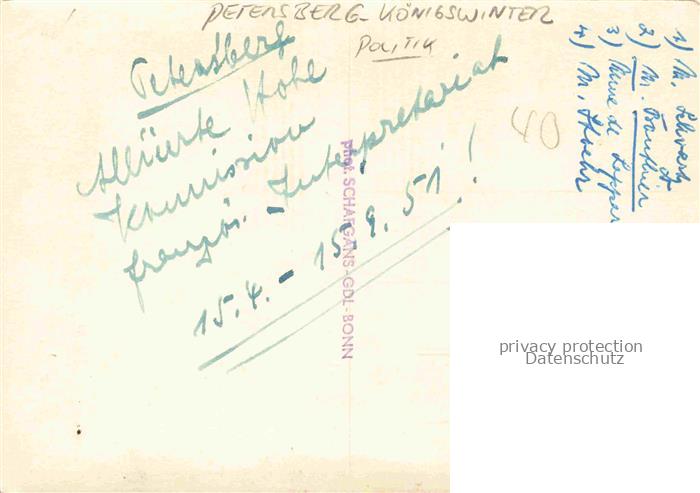 PETERSBERG-KÖNIGSWINTER
POLITIK
Petersberg
Alliierte Hohe
Kommission
französ. - Interpretariat
15.4. - 15.9.51!
40
phot. SCHAFGANS-GDL-BONN
1) M.
2) M.
3) Mme de
4) M.
privacy protection
Datenschutz